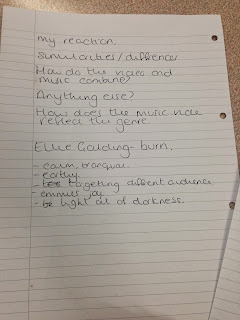 my reaction.
Similarities / differences
How do the video and
music combine?
Anything else?
How does the music video
reflect the genre.
Ellie Goulding - burn.
- calm, tranquil.
- earthy.
- targeting different audience
- emmits joy
- be light out of darkness.